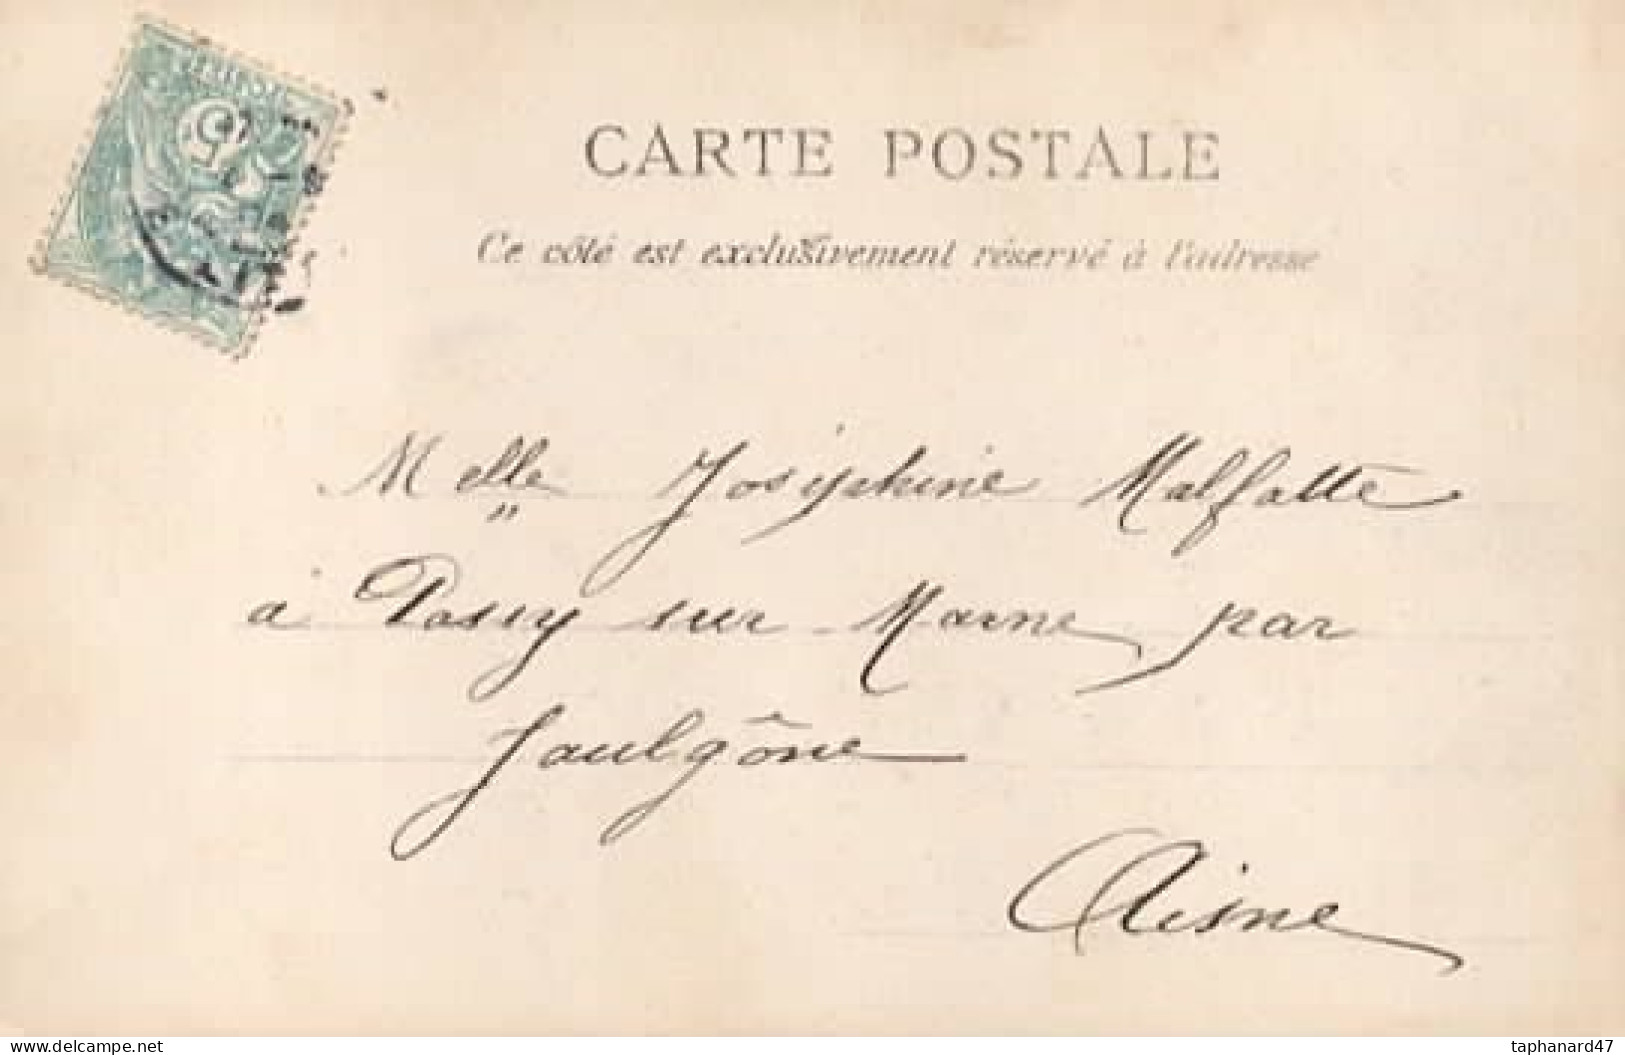 CARTE POSTALE
Ce côté est exclusivement réservé à l'adresse
5
Melle Joséphine Malfatte
à Passy sur Marne par
Jaulgône
Aisne
www.delcampe.net
taphanard47